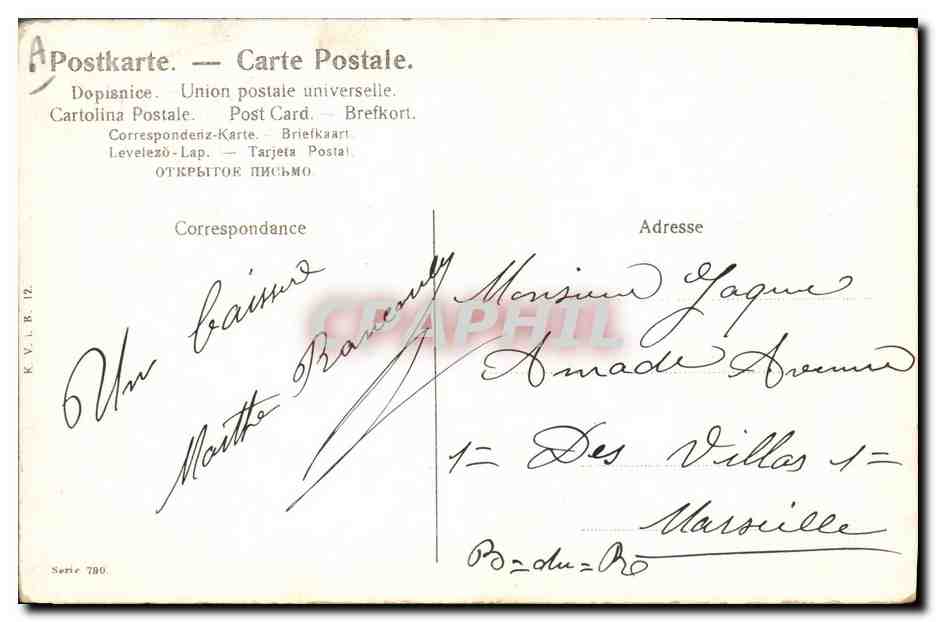 A
Postkarte. — Carte Postale.
Dopisnice. Union postale universelle.
Cartolina Postale. Post Card. — Brefkort.
Correspondenz-Karte. — Briefkaart.
Levelezö-Lap. — Tarjeta Postal.
ОТКРЫТОЕ ПИСЬМО.
Correspondance
Un baiser
Marthe
K. V. i. B. 12.
Serie 790.
Adresse
Monsieur Jaque
Amade Avenue
1= Des Villas 1=
Marseille
B=du=R
CPAPHIL